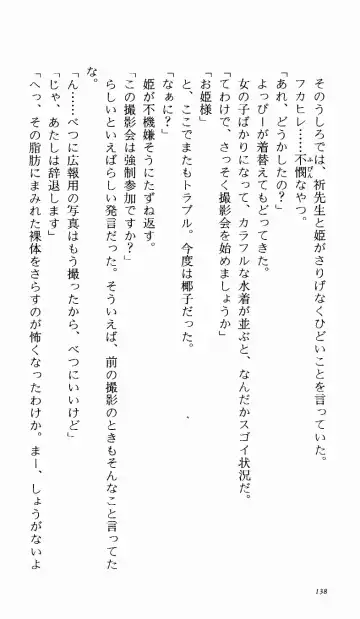 そのうしろでは、祈先生と姫がさりげなくひどいことを言っていた。
フカヒレ……不憫なやつ。
「あれ、どうかしたの？」
よっぴーが着替えてもどってきた。
女の子ばかりになって、カラフルな水着が並ぶと、なんだかスゴイ状況だ。
「てわけで、さっそく撮影会を始めましょうか」
「お姫様」
と、ここでまたもトラブル。今度は椰子だった。
「なぁに？」
姫が不機嫌そうにたずね返す。
「この撮影会は強制参加ですか？」
らしいといえばらしい発言だった。そういえば、前の撮影のときもそんなこと言ってた
な。
「ん……べつに広報用の写真はもう撮ったから、べつにいいけど」
「じゃ、あたしは辞退します」
「へっ、その脂肪にまみれた裸体をさらすのが怖くなったわけか。まー、しょうがないよ
138